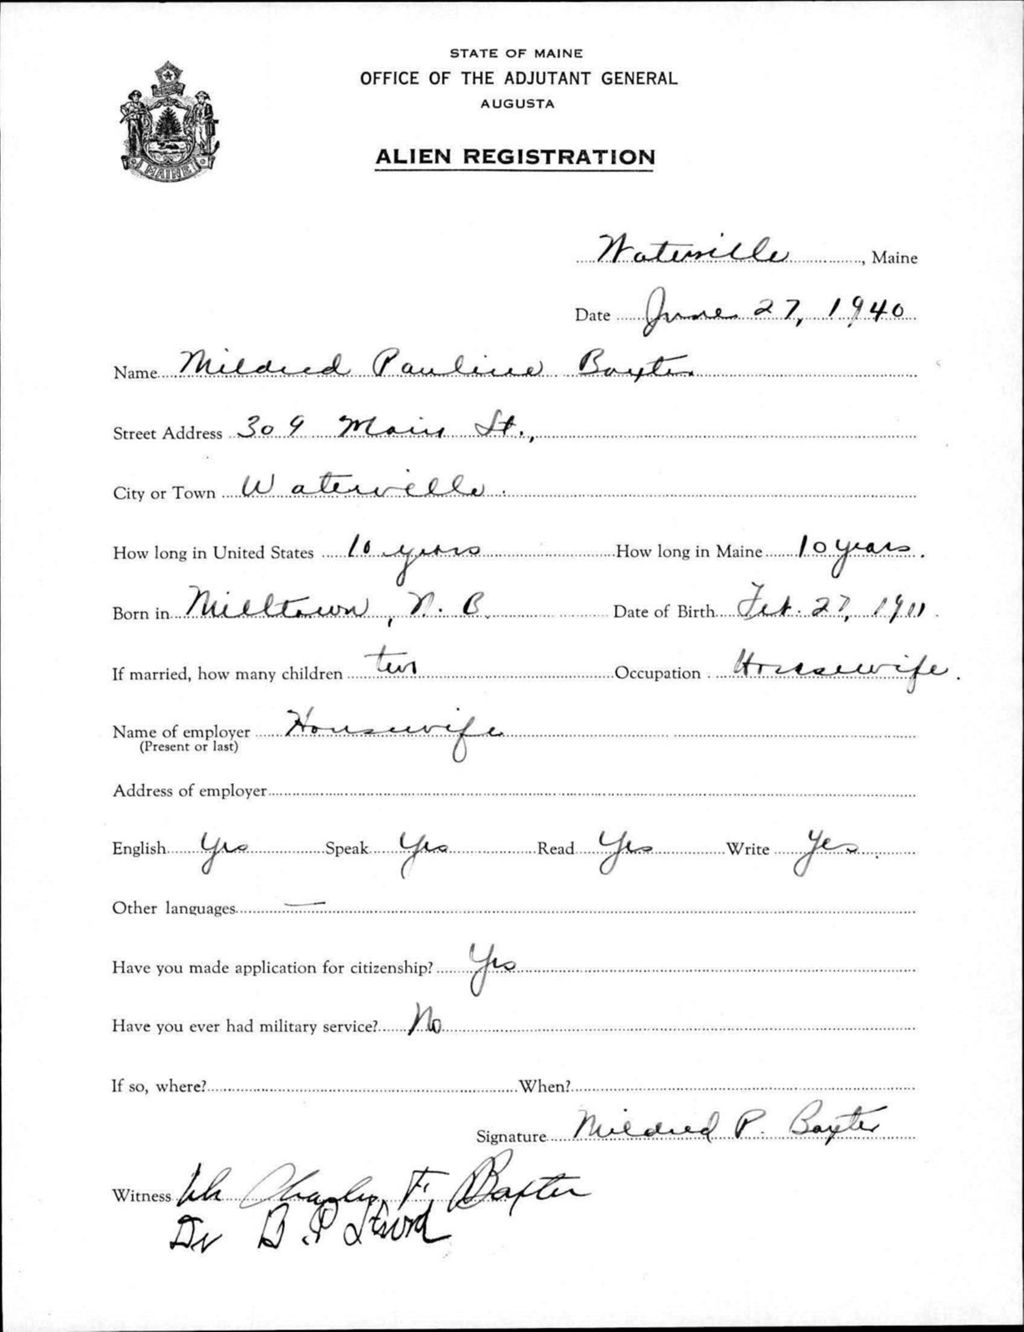 STATE OF MAINE
OFFICE OF THE ADJUTANT GENERAL
AUGUSTA
ALIEN REGISTRATION
MAINE
Waterville, Maine
Date June 27, 1940
Name Mildred Pauline Baxter
Street Address 309 Main St.,
City or Town Waterville.
How long in United States 10 years How long in Maine 10 years.
Born in Milltown, N. B. Date of Birth Feb. 27, 1911.
If married, how many children two Occupation Housewife.
Name of employer Housewife
(Present or last)
Address of employer
English Yes Speak Yes Read Yes Write Yes.
Other languages —
Have you made application for citizenship? Yes
Have you ever had military service? No
If so, where? When?
Signature Mildred P. Baxter
Witness Charles F. Baxter
Dr B. P.